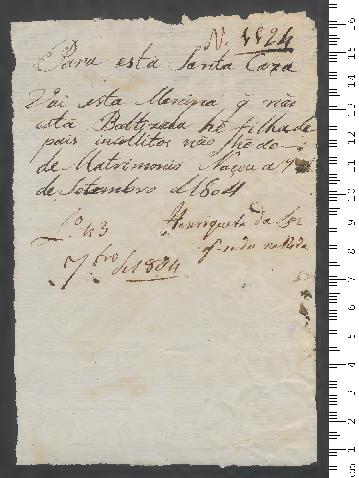 N. 4824
Para está Santa Caza
Vai esta Menina q̃ não
está Baltizada he filha de
pais incollitos não he do
de Matrimonio Naçeu a 7
de Setemvro de 1804
Henriqueta da
Lº 43
na Roda
7bro de 1804